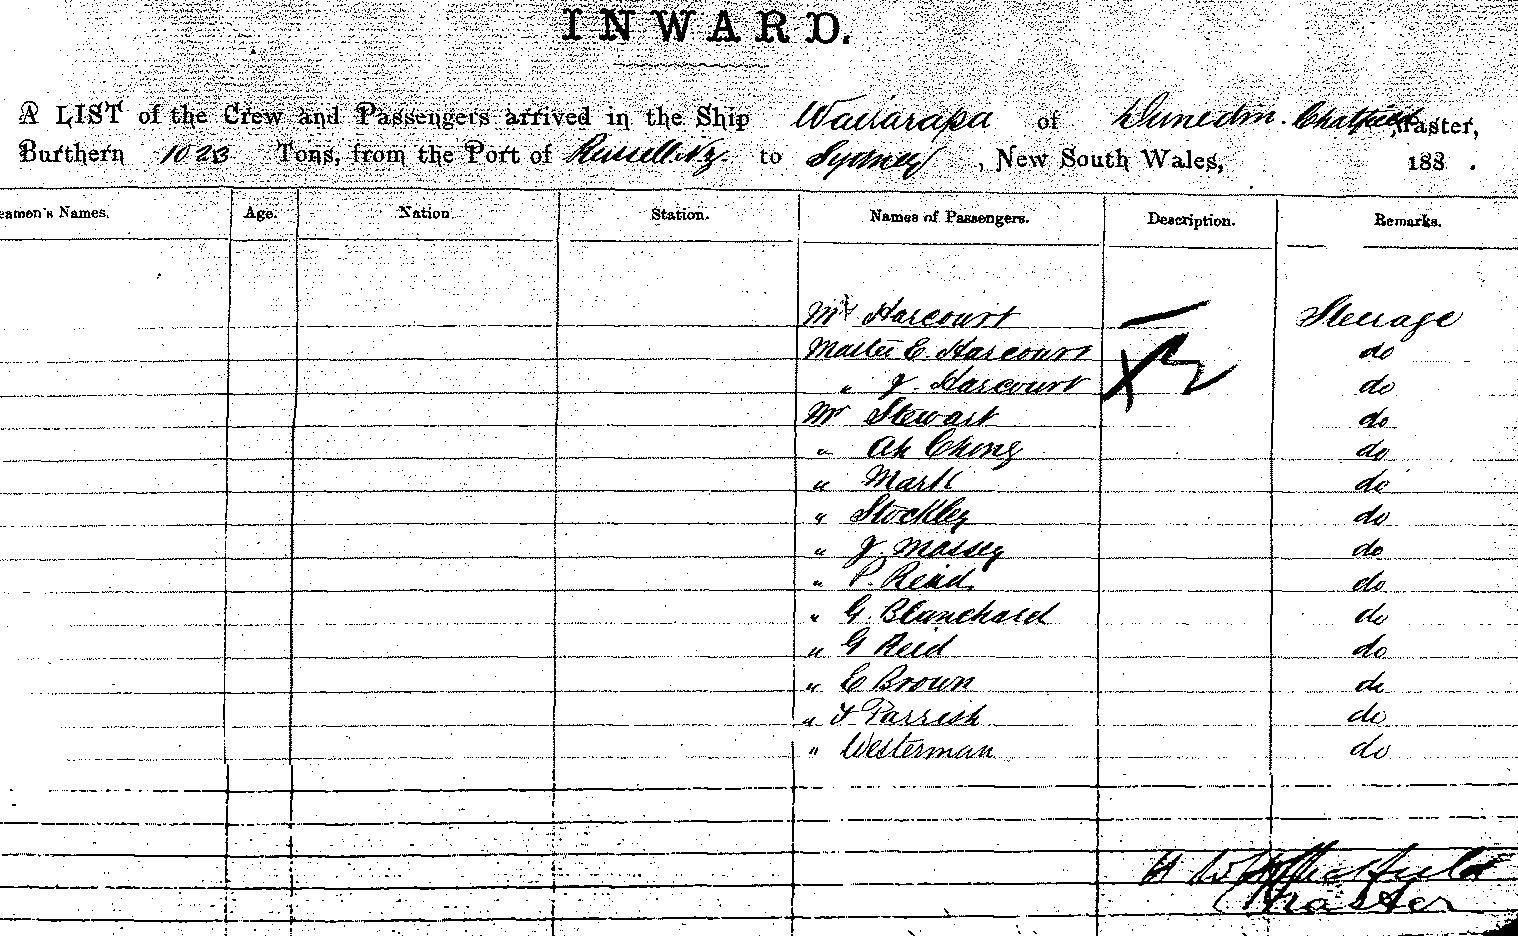 INWARD.
A LIST of the Crew and Passengers arrived in the Ship Wairarapa of Dunedin. Chatfield Master,
Burthern 1023 Tons, from the Port of Russell NZ. to Sydney, New South Wales, 188 .
eamen's Names. Age. Nation Station. Names of Passengers. Description. Remarks.
Harcourt Steerage
Master E. Harcourt do
" J. Harcourt do
Mr Stewart do
" Ah Chong do
" Mark do
" Stockley do
" J. Massey do
" P. Reid do
" G. Blanchard do
" G Reid do
" E Brown do
" Parrish do
" Westerman do
Chatfield
Master